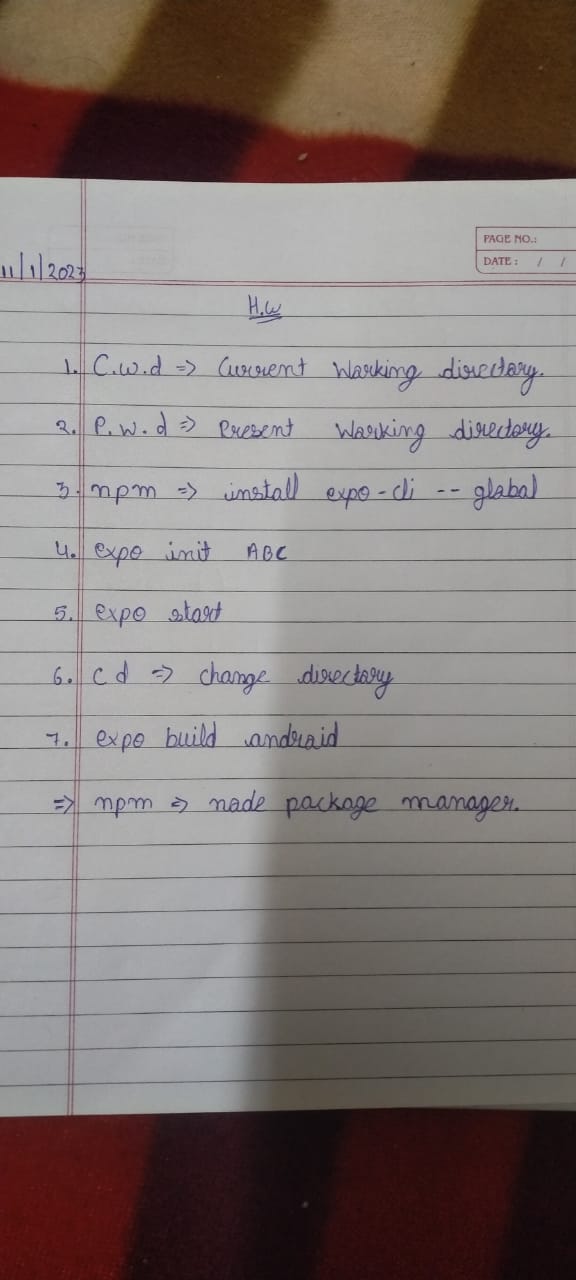 PAGE NO.:
DATE: / /
11/1/2023
H.w
1. C.w.d => Current Working directory.
2. P.w.d => Present Working directory.
3. npm => install expo-cli -- global
4. expo init ABC
5. expo start
6. cd => change directory
7. expo build android
=> npm => node package manager.